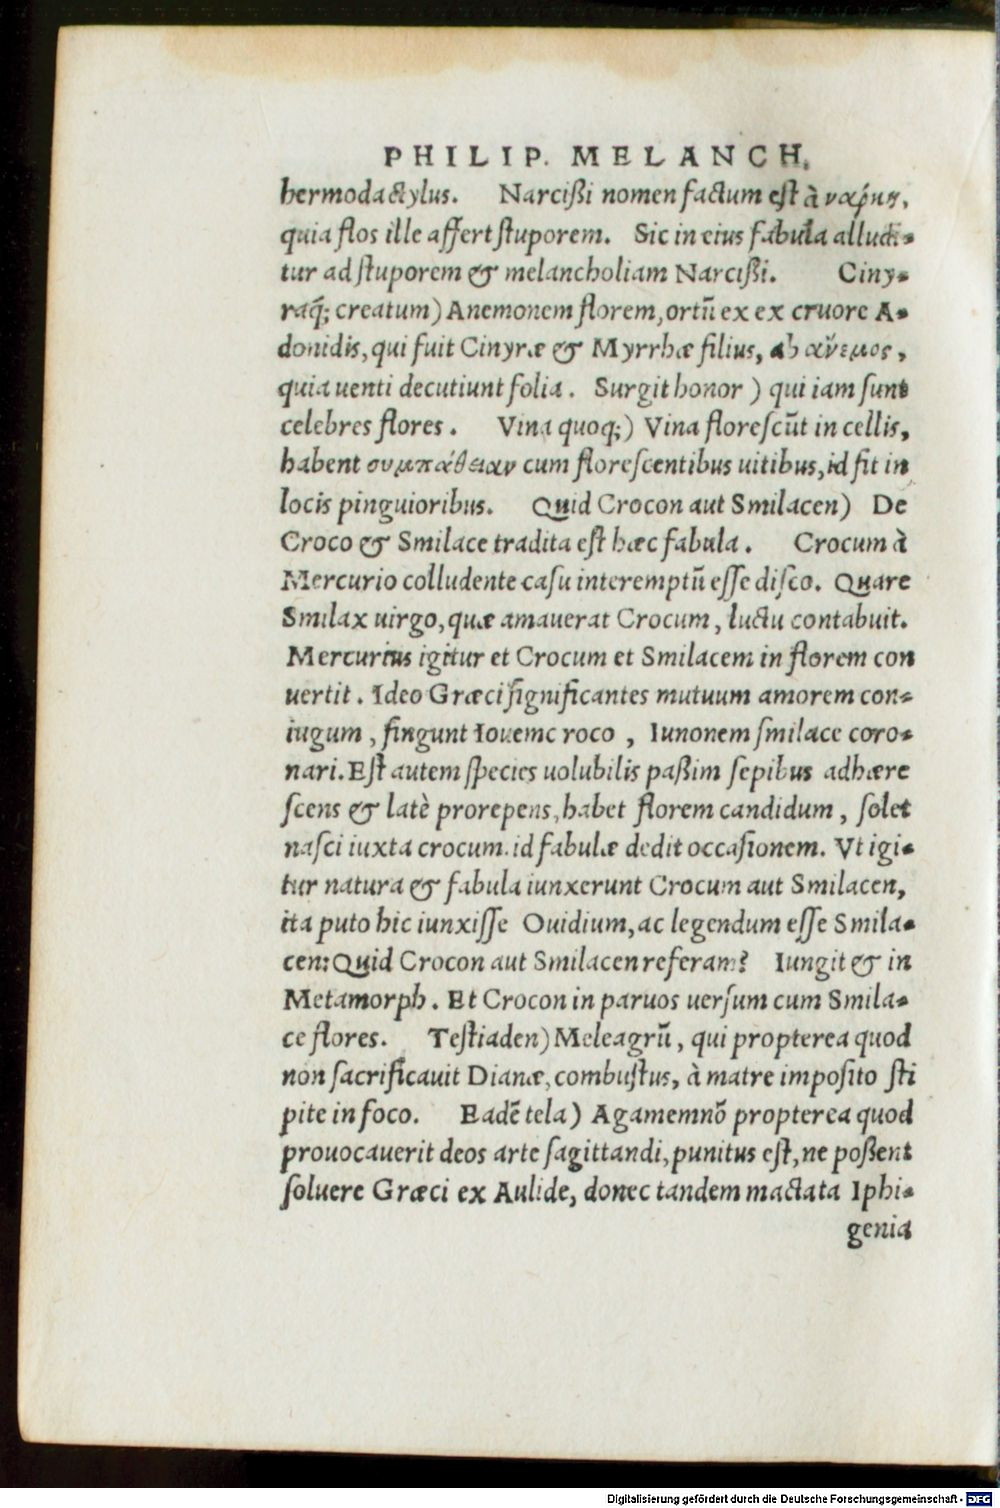 PHILIP. MELANCH.
hermodactylus. Narciſſi nomen factum eſt à νάρκη,
quia flos ille affert ſtuporem. Sic in eius fabula alludi-
tur ad ſtuporem & melancholiam Narciſſi. Ciny-
raq́; creatum) Anemonem florem, ortū ex ex cruore A-
donidis, qui fuit Cinyræ & Myrrhæ filius, ab ἄνεμος,
quia uenti decutiunt folia. Surgit honor ) qui iam ſunt
celebres flores. Vina quoq;) Vina floreſcūt in cellis,
habent συμπάθειαν cum floreſcentibus uitibus, id fit in
locis pinguioribus. Quid Crocon aut Smilacen) De
Croco & Smilace tradita eſt hæc fabula. Crocum à
Mercurio colludente caſu interemptū eſſe diſco. Quare
Smilax uirgo, quæ amauerat Crocum, luctu contabuit.
Mercurius igitur et Crocum et Smilacem in florem con
uertit. Ideo Græci ſignificantes mutuum amorem con-
iugum, fingunt Iouemc roco, Iunonem ſmilace coro-
nari. Eſt autem ſpecies uolubilis paſſim ſepibus adhære
ſcens & latè prorepens, habet florem candidum, ſolet
naſci iuxta crocum. id fabulæ dedit occaſionem. Vt igi-
tur natura & fabula iunxerunt Crocum aut Smilacen,
ita puto hic iunxiſſe Ouidium, ac legendum eſſe Smila-
cen: Quid Crocon aut Smilacen referam? Iungit & in
Metamorph. Et Crocon in paruos uerſum cum Smila-
ce flores. Teſtiaden) Meleagrū, qui propterea quod
non ſacrificauit Dianæ, combuſtus, à matre impoſito ſti
pite in foco. Eadē tela) Agamemnō propterea quod
prouocauerit deos arte ſagittandi, punitus eſt, ne poſſent
ſoluere Græci ex Aulide, donec tandem mactata Iphi-
genia
Digitalisierung gefördert durch die Deutsche Forschungsgemeinschaft - DFG